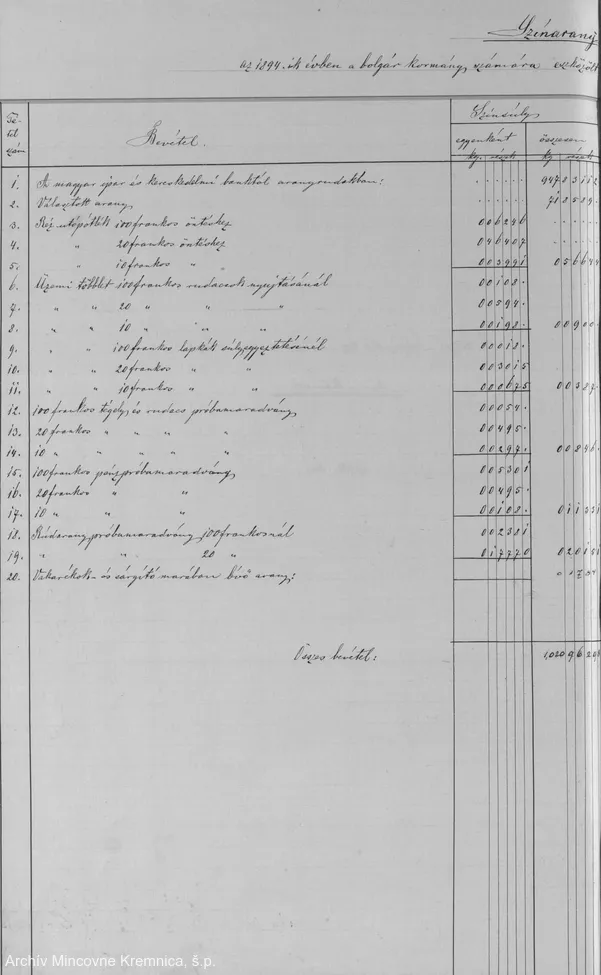 Színarany
az 1894. ik évben a bolgár kormány számára eszközölt
Té-
tel
szám
Bevétel.
Színsúly
egyenként
összesen
kg. részek
kg részek
1. A magyar ipar és kereskedelmi banktól aranyrudakban: 947 8 3 1 1 2
2. Választott arany 7 1 8 5 8 9
3. Réz utópótlék 100 frankos öntéshez 0 0 6 2 4 6
4. " 20 frankos öntéshez 0 4 6 4 0 7
5. " 10 frankos " 0 0 3 9 9 1 0 5 6 6 4 4
6. Üzemi többlet 100 frankos rudacsok nyujtásánál 0 0 1 0 8 .
7. " " 20 " " 0 0 5 9 4 .
8. " " 10 " " " 0 0 1 9 8 . 0 0 9 0 0
9. " " 100 frankos lapkák súlyegyeztetésénél 0 0 0 1 8 .
10. 20 frankos " " 0 0 3 0 1 5
11. " 10 frankos " " 0 0 0 6 7 5 0 0 3 8 7
12. 100 frankos tégely és rudacs próbamaradvány 0 0 0 5 4 .
13. 20 frankos " " " " 0 0 4 9 5 .
14. 10 " " " " " 0 0 2 9 7 . 0 0 8 4 6
15. 100 frankos pénzpróbamaradvány 0 0 5 3 0 1
16. 20 frankos " " 0 0 4 9 5 .
17. 10 " " " 0 0 1 0 8 . 0 1 1 3 3 1
18. Rúdarany próbamaradvány 100 frankosnál 0 0 2 3 8 1
19. " " 20 " 0 1 7 7 7 0 0 2 0 1 5 1
20. Vakarékok- és sárgító marában lévő arany:
Összes bevétel: 1,020 9 6 2 9
Archív Mincovne Kremnica, š.p.